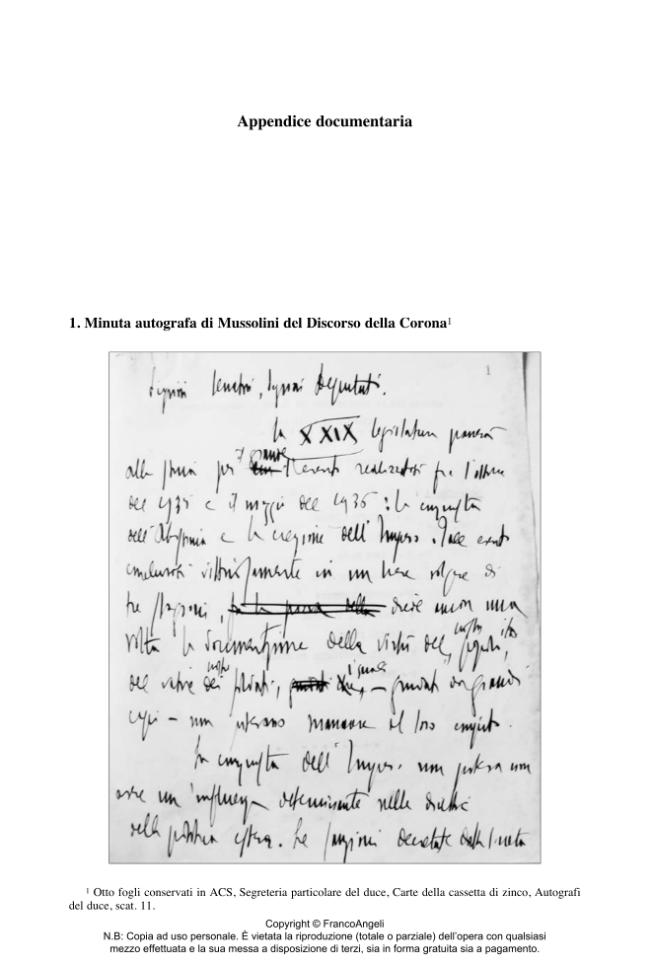 Appendice documentaria
1. Minuta autografa di Mussolini del Discorso della Corona¹
1
Signori Senatori, Signori Deputati.
La XXIX legislatura passerà
alla storia per il grande evento realizzatosi fra l'ottobre
del 1935 e il maggio del 1936: la conquista
dell'Abissinia e la creazione dell'Impero. Tale evento
conclusosi vittoriosamente in un breve volgere di
tre stagioni, diede ancora una
volta la documentazione della virtù del nostro popolo,
del valore dei nostri soldati, i quali – guidati da grandi
capi – non potevano mancare al loro compito.
La conquista dell'Impero non poteva non
avere un'influenza determinante nelle direttive
della politica estera. Le sanzioni decretate dalla Società
¹ Otto fogli conservati in ACS, Segreteria particolare del duce, Carte della cassetta di zinco, Autografi
del duce, scat. 11.
Copyright © FrancoAngeli
N.B: Copia ad uso personale. È vietata la riproduzione (totale o parziale) dell'opera con qualsiasi
mezzo effettuata e la sua messa a disposizione di terzi, sia in forma gratuita sia a pagamento.